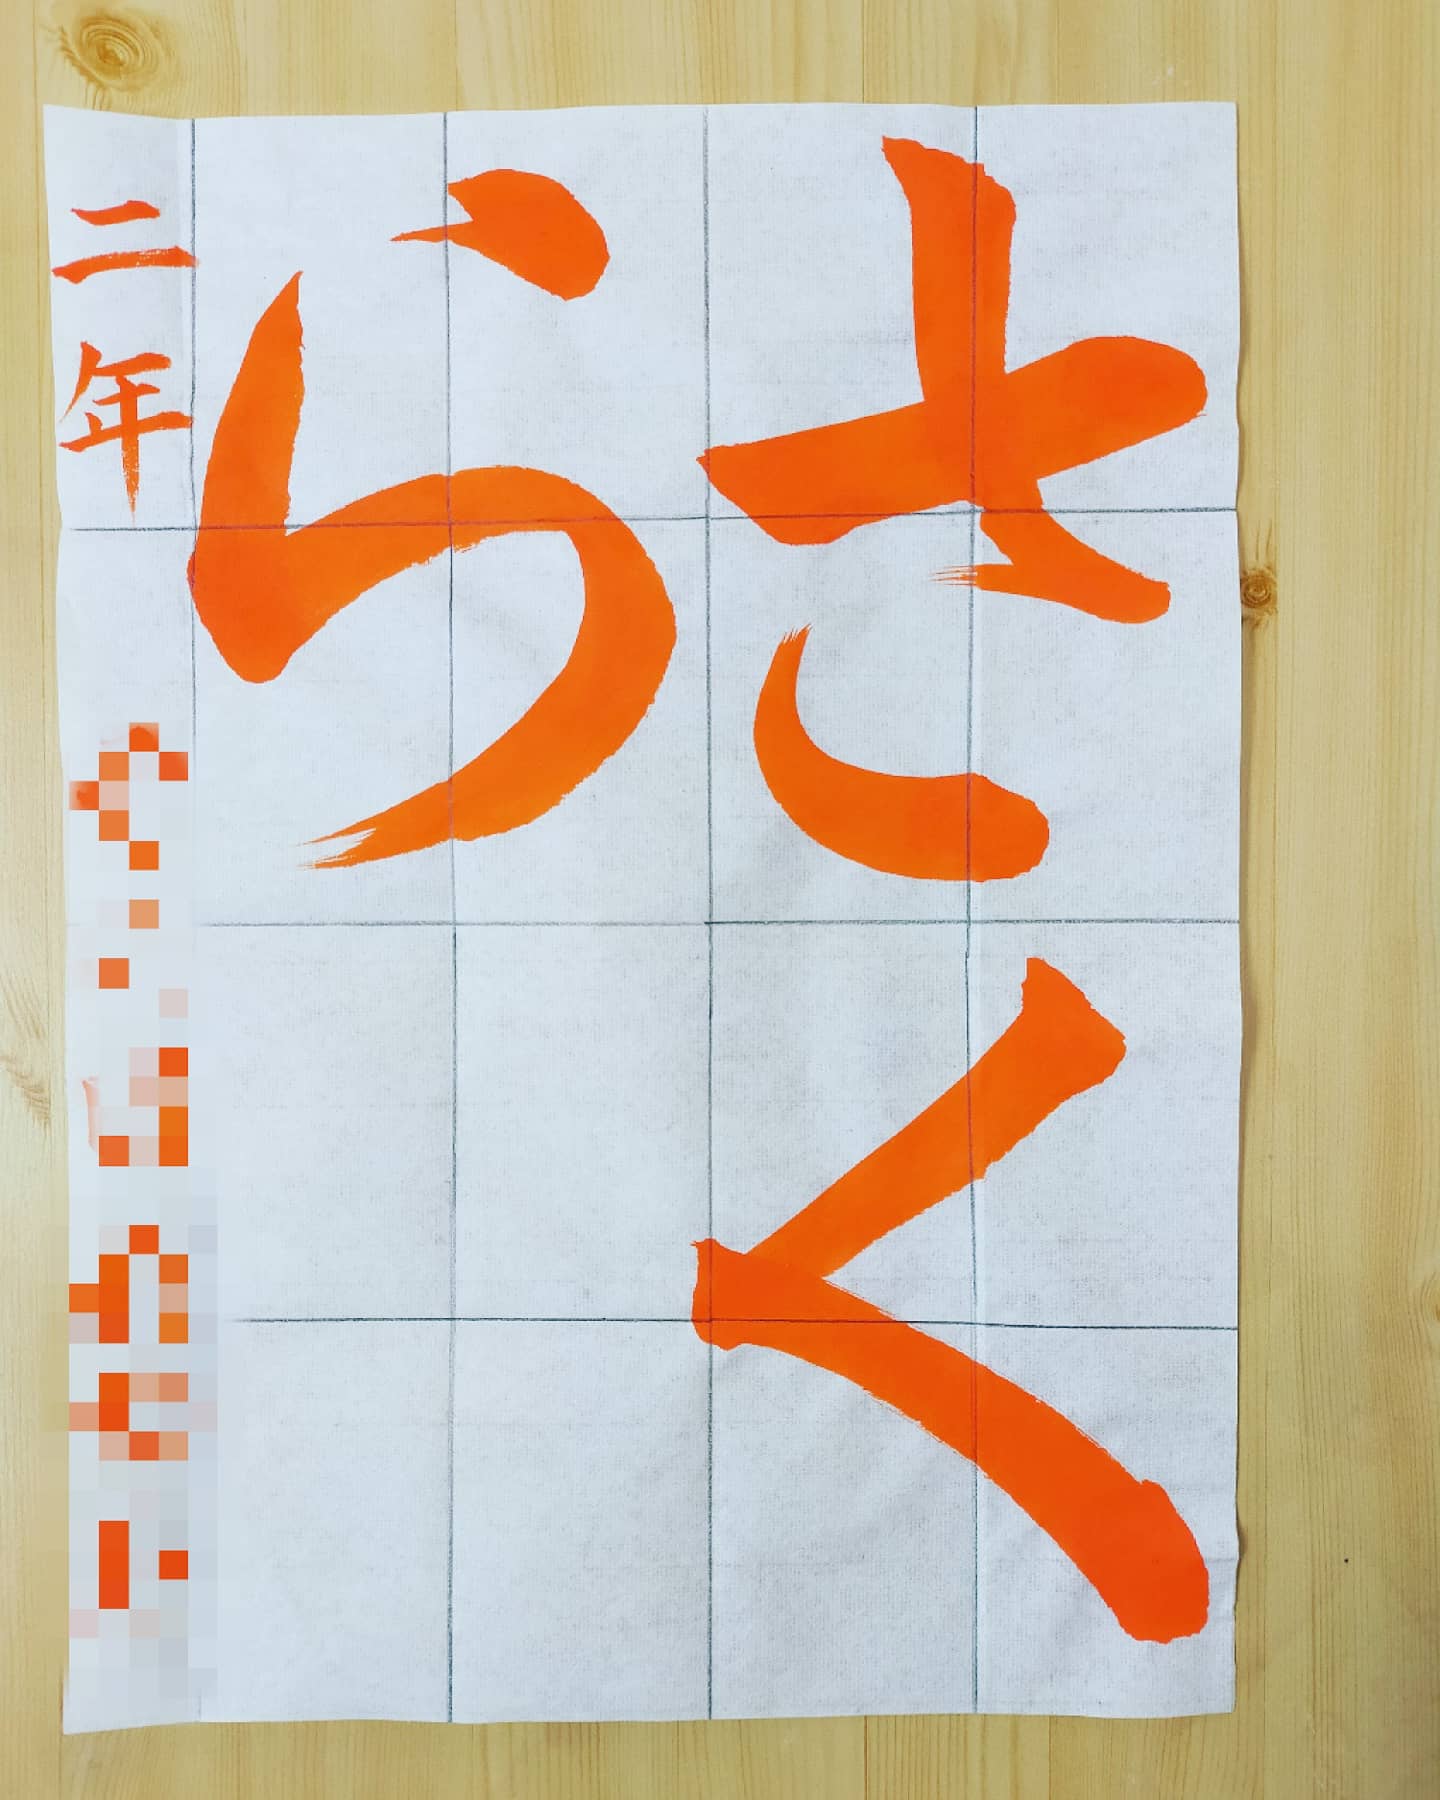 さく
ら
二年